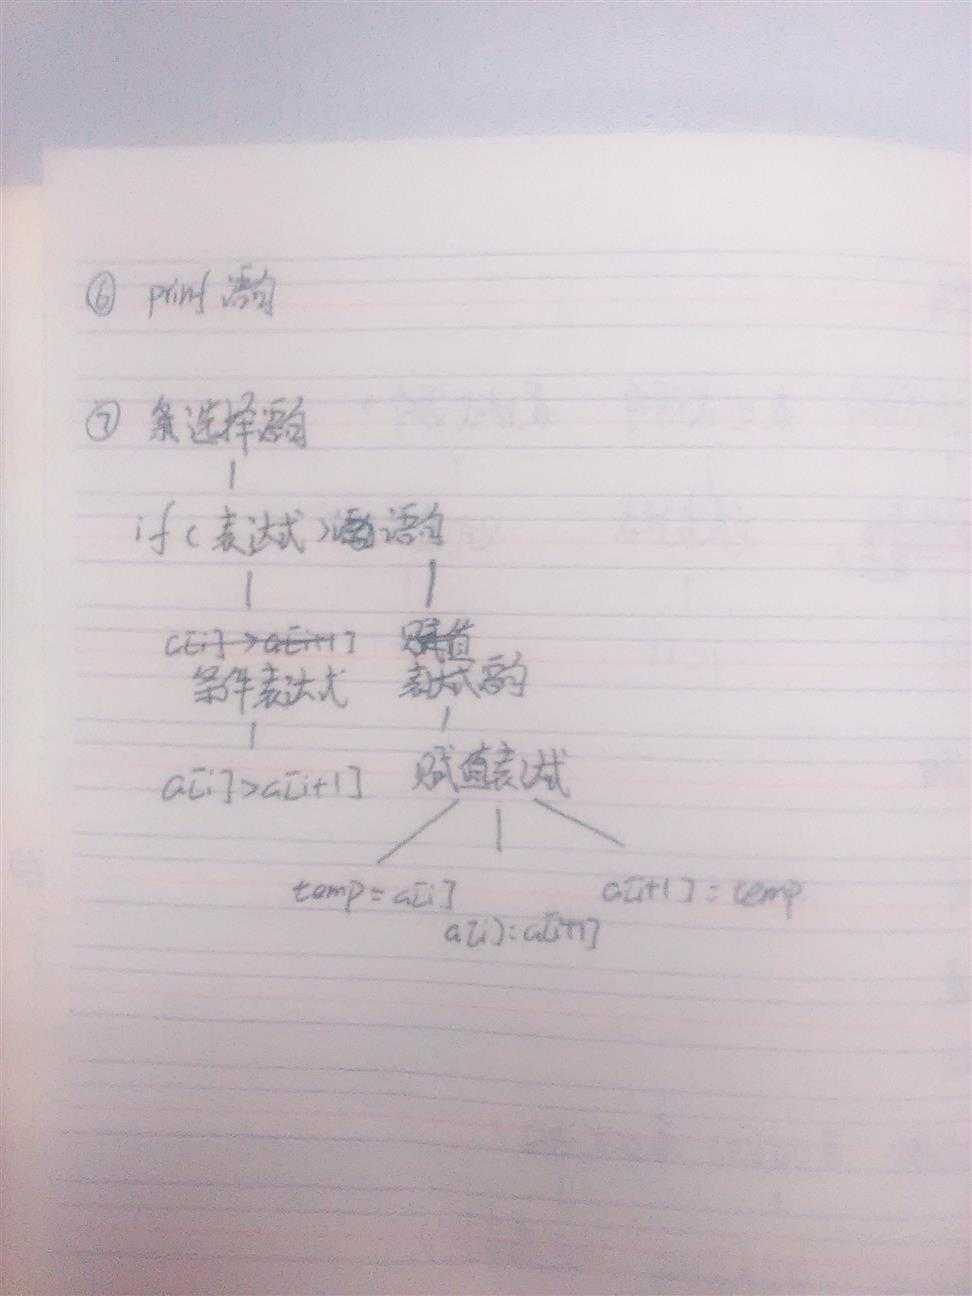 ⑥ printf 语句
⑦ 选择语句
if(表达式) 语句
a[i]>a[i+1] 赋值
条件表达式 表达式语句
a[i]>a[i+1] 赋值表达式
temp=a[i] a[i+1]=temp
a[i]=a[i+1]